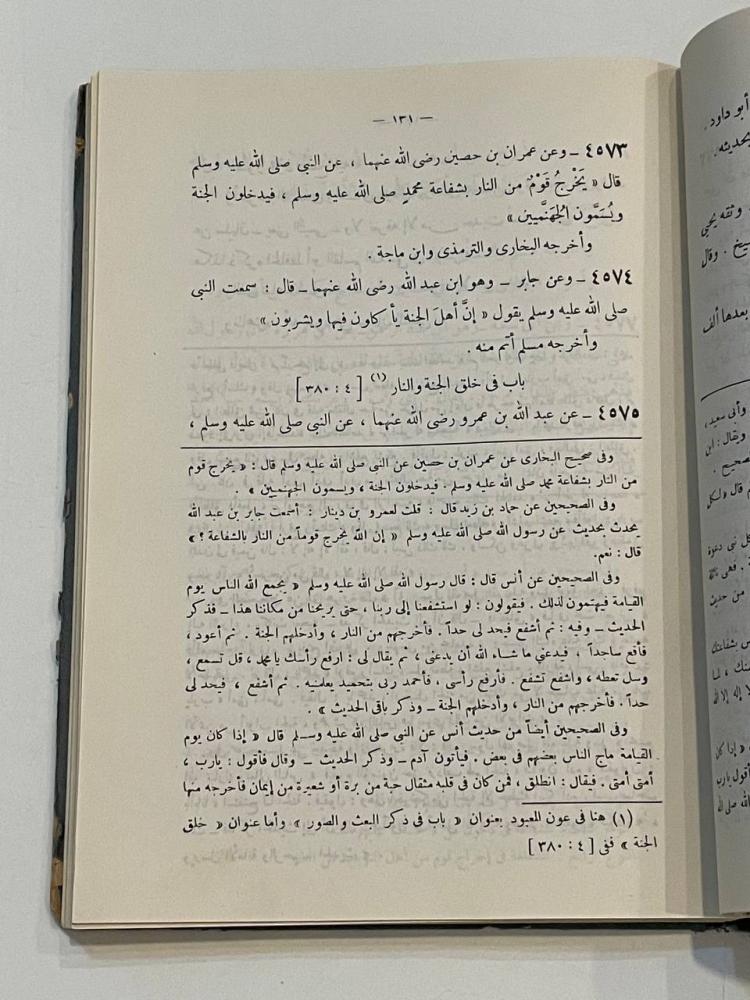 — ١٣١ —
٤٥٧٣ ـ وعن عمران بن حصين رضى الله عنهما ، عن النبي صلى الله عليه وسلم
قال « يَخْرجُ قَوْمٌ من النار بشفاعة محمدٍ صلى الله عليه وسلم ، فيدخلون الجنة
ويُسَمَّون الْجَهَنَّمِيين »
وأخرجه البخارى والترمذى وابن ماجة .
٤٥٧٤ ـ وعن جابر ـ وهو ابن عبد الله رضى الله عنهما ـ قال : سمعت النبي
صلى الله عليه وسلم يقول « إنَّ أهلَ الجنة يأكلون فيها ويشربون »
وأخرجه مسلم أتم منه .
باب فى خلق الجنة والنار (١) [ ٤ : ٣٨٠ ]
٤٥٧٥ ـ عن عبد الله بن عمرو رضى الله عنهما ، عن النبي صلى الله عليه وسلم ،
وفى صحيح البخارى عن عمران بن حصين عن النبي صلى الله عليه وسلم قال : « يخرج قوم
من النار بشفاعة محمد صلى الله عليه وسلم . فيدخلون الجنة ، ويسمون الجهنميين » .
وفى الصحيحين عن حماد بن زيد قال : قلت لعمرو بن دينار : أسمعت جابر بن عبد الله
يحدث بحديث عن رسول الله صلى الله عليه وسلم « إن الله يخرج قوماً من النار بالشفاعة ؟ »
قال : نعم.
وفى الصحيحين عن أنس قال : قال رسول الله صلى الله عليه وسلم « يجمع الله الناس يوم
القيامة فيهتمون لذلك . فيقولون : لو استشفعنا إلى ربنا ، حتى يريحنا من مكاننا هذا ـ فذكر
الحديث ـ وفيه : ثم أشفع فيحد لى حداً . فأخرجهم من النار ، وأدخلهم الجنة . ثم أعود ،
فأقع ساجداً ، فيدعنى ما شاء الله أن يدعنى ، ثم يقال لى : ارفع رأسك يا محمد ، قل تسمع ،
وسل تعطه ، واشفع تشفع . فأرفع رأسى ، فأحمد ربى بتحميد يعلمنيه . ثم أشفع ، فيحد لى
حداً . فأخرجهم من النار ، وأدخلهم الجنة ـ وذكر باقى الحديث » .
وفى الصحيحين أيضاً من حديث أنس عن النبي صلى الله عليه وسلم قال « إذا كان يوم
القيامة ماج الناس بعضهم فى بعض . فيأتون آدم ـ وذكر الحديث ـ وقال فأقول : يارب ،
أمتى أمتى . فيقال : انطلق ، فمن كان فى قلبه مثقال حبة من برة أو شعيرة من إيمان فأخرجه منها
(١) هنا فى عون المعبود بعنوان « باب فى ذكر البعث والصور » وأما عنوان « خلق
الجنة » ففى [ ٤ : ٣٨٠ ]
أبو داود .
بحديثه .
وثقه يحيى
وقال
بعدها ألف
وأبى سعيد ،
ويقال : ابن
قال « لكل
كل نبى دعوة
من حديث